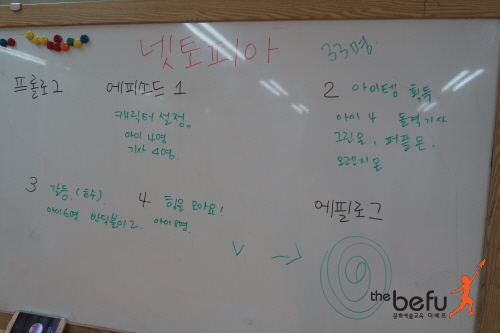 넷토피아
33명
프롤로그
에피소드 1
캐릭터 설정.
아이 4명
기사 4명.
2 아이템 획득
아이 4 돌격기사
그린몬, 퍼플몬,
오렌지몬
3 갈등.
아이6명 반딧불이 2.
4 힘을 모아요!
아이 8명.
에필로그
the befu
문화예술교육 더베프